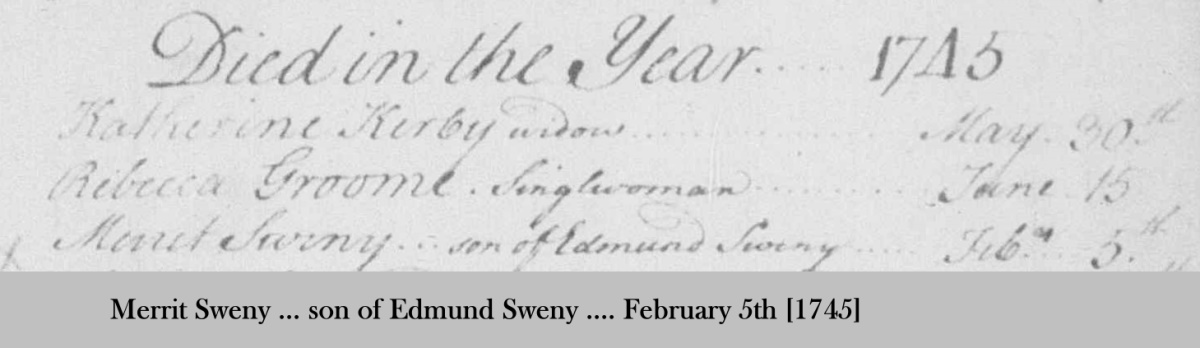 Died in the Year..... 1745
Katherine Kerby widow.................. May. 30.th
Rebecca Groome. Singlwoman............ June 15
Merrit Sweny... son of Edmund Sweny..... Feb.ry 5.th
Merrit Sweny ... son of Edmund Sweny .... February 5th [1745]